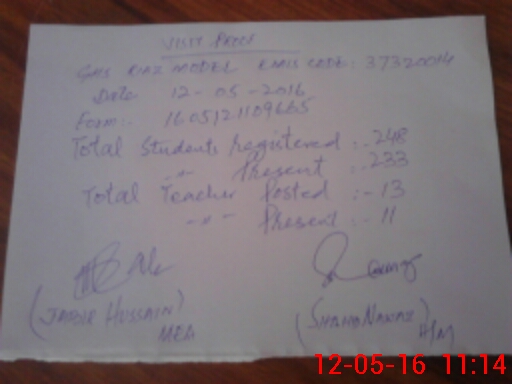 VISIT PROOF
GHS RIAZ MODEL EMIS CODE: 37320014
Date 12-05-2016
Form:- 1605121109665
Total Students registered :- 248
-"- Present :- 233
Total Teacher Posted :- 13
-"- Present :- 11
(JABIR HUSSAIN) (SHAH NAWAZ)
MEA H/M
12-05-16 11:14